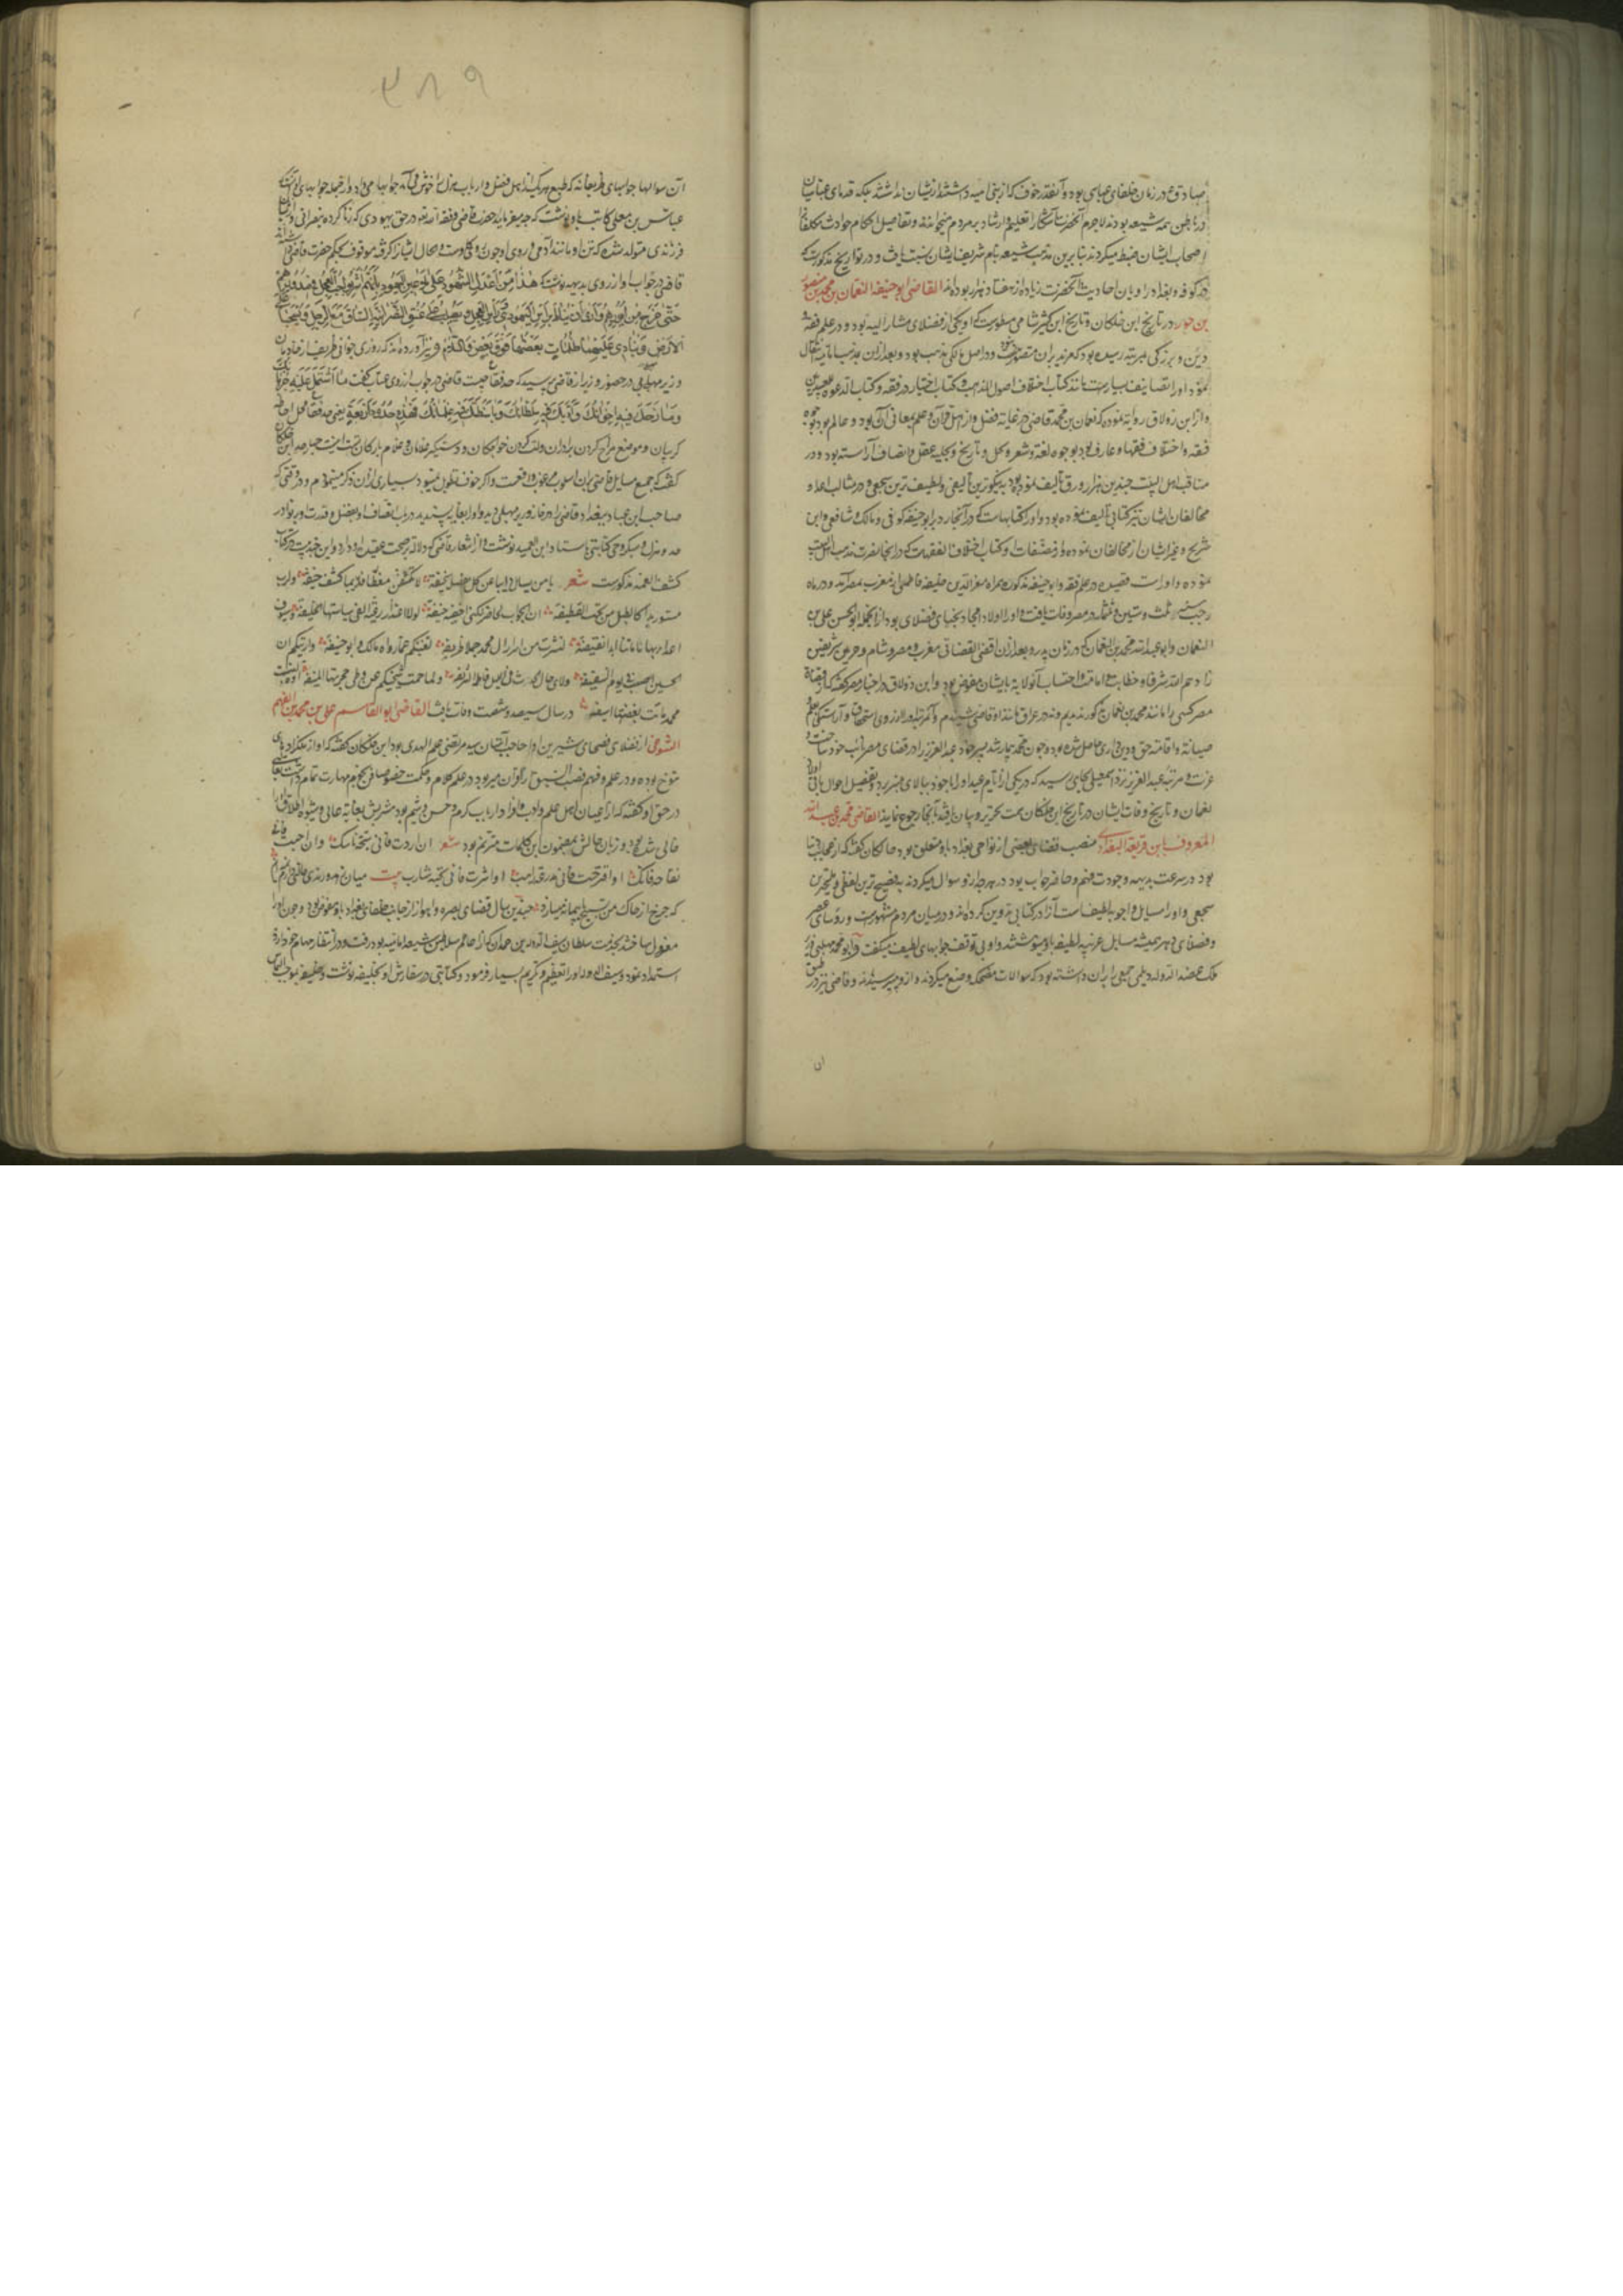 صادق ع در زمان خلفای عباسی بود و آنقدر خوف که از بنی امیه داشتند از ایشان نداشتند بلکه قدمای عباسیان
در باطن همه شیعه بودند لاجرم آنحضرت آشکارا تعلیم و ارشاد بر مردم میخواندند و تفاصیل احکام حوادث
اصحاب ایشان ضبط میکردند بنابرین مذهب شیعه بنام شریف ایشان نسبت یافت و در تواریخ مذکورست که
در کوفه و بغداد راویان احادیث آنحضرت زیاده از هفتاد هزار بوده‌اند القاضی ابو حنیفه النعمان بن محمد بن منصور
بن حیون در تاریخ ابن خلکان و تاریخ ابن کثیر شامی مسطورست که او یکی از فضلای مشار الیه بود و در علم فقه
و دین و بزرگی بمرتبه رسیده بود که مزید بران متصور نبود و در اصل مالکی مذهب بود و بعد ازان بمذهب امامیه انتقال
نمود و او را تصانیف بسیارست مانند کتاب اختلاف اصول المذاهب و کتاب اختیار در فقه و کتاب الدعوة للعبیدیین
و از ابن زولاق روایة نموده که نعمان بن محمد قاضی در غایة فضل و از اهل قرآن و علم بمعانی آن بود و عالم بود بوجوه
فقه و اختلاف فقها و عارف بود بوجوه لغة و شعر و تاریخ و بحلیه عقل و انصاف آراسته بود و در
مناقب اهل البیت چندین هزار ورق تألیف نموده بود به نیکوترین تألیفی و لطیف ترین سجعی و در مثالب اعدا و
مخالفان ایشان نیز کتابی تألیف نموده بود و او را کتابهاست که در آنجا رد بر ابو حنیفه کوفی و مالک و شافعی و ابن
شریح و غیر ایشان از مخالفان نموده و از مصنفات او کتاب اختلاف الفقهاست که در انجا نصرت مذهب اهل البیت
نموده و او راست قصیده در علم فقه و ابو حنیفه مذکور همراه معز الدین خلیفه فاطمی از مغرب بمصر آمد و در ماه
رجب سنه ثلث و ستین و ثلثمائه در مصر وفات یافت و او را اولاد امجاد نجبای فضلای بود از انجمله ابو الحسن علی بن
النعمان و ابو عبدالله محمد بن النعمان که در زمان پدر و بعد ازان اقضی القضاتی مغرب و مصر و شام و حرمین شریفین
زادهما الله شرفا و خطابت و امامت و احتساب آنولایة بایشان مفوض بود و ابن زولاق در اخبار مصر گفته که از قضاة
مصر کسی را مانند محمد بن نعمان مذکور ندیدیم و نه در عراق مانند او قاضی شنیدیم و آن مرتبه او را از روی استحقاق و آراستگی بعلم و
صیانة و اقامة حق و دین داری حاصل شده بود و چون محمد بیمار شد پسر خود عبد العزیز را در قضای مصر نایب خود ساخت و
عزت و مرتبه عبد العزیز نزد اسمعیلی بجای رسید که در یکی از ایام عید او را با خود ببالای منبر برد و تفصیل احوال باقی اولاد
نعمان و تاریخ وفات ایشان در تاریخ ابن خلکان سمت تحریر و بیان یافته بآنجا رجوع نمایند القاضی محمد بن عبد الله
المعروف بابن قریعه البغدادی منصب قضای بعضی از نواحی بغداد باو متعلق بود و خلکان گفته که از عجایب دنیا
بود در سرعت بدیهه و جودت فهم و حاضر جواب بود در هرچه ازو سؤال میکردند بفصیح ترین لفظی و ملیح ترین
سجعی و او را مسایل و اجوبه لطیف است آنرا در کتابی تدوین کرده‌اند و در میان مردم مشهورست و رؤسای عصر
و فضلای دهر همیشه مسایل غریبه لطیفه باو مینوشتند و او بی توقف جوابهای لطیف میگفت و ابو محمد مهلبی وزیر
ملک عضد الدوله دیلمی جمعی را بران داشته بود که سؤالات مضحک وضع میکردند و ازو میپرسیدند و قاضی نیز در
ان
۳۸۹
آن سوالها جوابهای ظریفانه که طبع هر یک از اهل فضل و ارباب هزل را خوش می‌آمد جوابها میداد و از جمله جوابهای او آنست که
عباس بن معلی کاتب باو نوشت که چه میفرماید حضرت قاضی وفقه الله در حق یهودی که زنا کرده بنصرانی و ازیشان
فرزندی متولد شده که تن او مانند آدمی و روی او چون روی گاوست و حال ایشانرا گرفته موقوف بحکم حضرت قاضی‌اند
قاضی در جواب او از روی بدیهه نوشت که هٰذا من اعدل الشهود علی الملاعین الیهود بانهم اشربوا حب العجل فی صدورهم
حتی خرج من ایورهم و اری ان یناط براس الیهودی راس العجل و یصلب علی عنق النصرانیة الساق مع الرجل و یسحبا علی
الارض و ینادی علیهما ظلمات بعضها فوق بعض والسلام و نیز آورده‌اند که روزی جوانی ظریف از خادمان
وزیر مهلبی در حضور وزیر از قاضی پرسید که حد قفا چیست قاضی در جواب از روی عتاب گفت ما اشتمل علیه جربانک
و مازحک فیه اخوانک و ادبک فیه سلطانک و باسطک فیه غلمانک فهذه حدود اربعة یعنی حد قفا محل احاطه
گریبان و موضع مزاح کردن برادران و ادب کردن خواجگان و دستگیر غلامان و خدام بارکان تست اینست چهار حد ابن خلکان
گفته که جمیع مسایل قاضی بران اسلوب مرغوب واقعست و اگر خوف تطویل نمیبود بسیاری ازان ذکر مینمودم و در وقتی که
صاحب ابن عباد ببغداد قاضی را در خانه وزیر مهلبی دید و او را بغایت پسندید در باب اتصاف او بفضل و قدرت و بر نوادر
کشف الغمه مذکورست شعر یا من یسائل دائبا عن کل معضلة سخیفة لا تکشفن مغطّا فلربما کشفت جیفة ولرب
مستور بدا کالطبل من تحت القطیفة ان الجواب لحاضر لکننی اخفیه خیفة لولا اعتداء رعیة القی سیاستها الخلیفة و سیوف
اعداء بها هاماتنا ابدا نقیفة لنشرت من اسرار آل محمد جملا ظریفة تغنیکم عما رواه مالک و ابو حنیفة و اریتکم ان
الحسین اصیب فی یوم السقیفة ولای حال لحدت فی اللیل فاطمة الشریفة ولما حمت شیخیکم عن وطی حجرتها المنیفة اوه لبنت
محمد ماتت بغصتها اسیفة در سال سیصد و شصت وفات یافت القاضی ابو القاسم علی بن محمد بن ابی الفهم
التنوخی از فضلای فصحای شیرین ادا صاحب آستان سید مرتضی علم الهدی بود ابن خلکان گفته که او
در حق او گفته که از اعیان اهل علم و ادب و افراد ارباب کرم و حسن شیم بود
خالی شدی و زبان حالش بمضمون این کلمات مترنم بود شعر ان اردت فانی سبحة ناسک و ان احببت فانی
تفاحة فاتک او اقترحت فانی مدرعة راهب او آثرت فانی تحیة شارب بیت میان زهد و رندی عالمی دارم نمیدانم
که چرخ از خاک من تسبیح یا پیمانه میسازد چندین سال قضای بصره و اهواز از جانب خلفای بغداد باو مفوض بود و چون او را
معزول ساختند بخدمت سلطان سیف الدوله بن حمدان که از اعاظم سلاطین شیعه امامیه بود رفت و در انتظار مهام خود ازو
استمداد نمود و سیف الدوله او را تعظیم و تکریم بسیار فرمود و کتابتی در سفارش او بخلیفه نوشت و خلیفه بموجب التماس